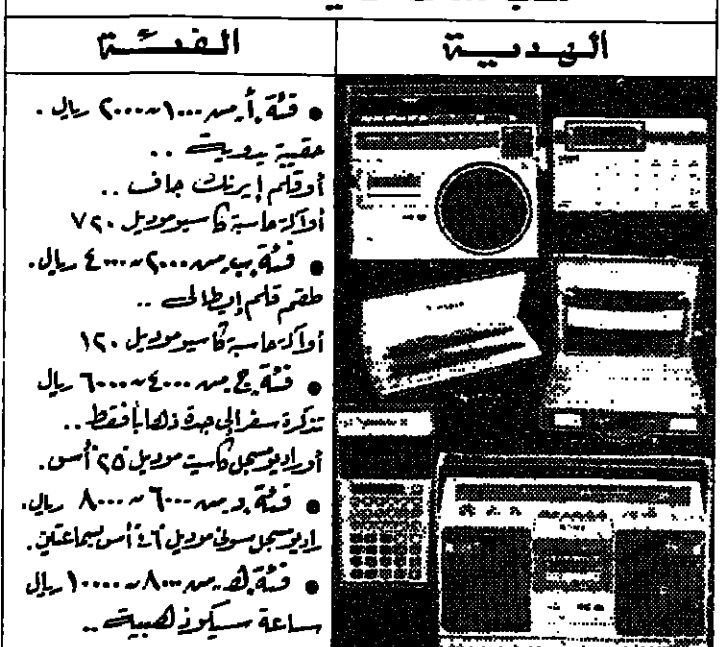 الفئة
الهدية
• فئة أ من ١٠٠٠ ~ ٢٠٠٠ ريال .
حقيبة يدوية ..
أو قلم إيرنك جاف ..
أو آلة حاسبة كاسيو موديل ٧٢٠
• فئة ب من ٢٠٠٠ ~ ٤٠٠٠ ريال .
طقم قلم إيطالي ..
أو آلة حاسبة كاسيو موديل ١٢٠
• فئة ج من ٤٠٠٠ ~ ٦٠٠٠ ريال
تذكرة سفر إلى جدة ذهابا فقط ..
أو راديو مسجل كاسيت موديل ٢٥ أس .
• فئة د من ٦٠٠٠ ~ ٨٠٠٠ ريال .
راديو مسجل سوني موديل ٤٦ أس بسماعتين .
• فئة هـ من ٨٠٠٠ ~ ١٠٠٠٠ ريال
ساعة سيكو ذهبية ..